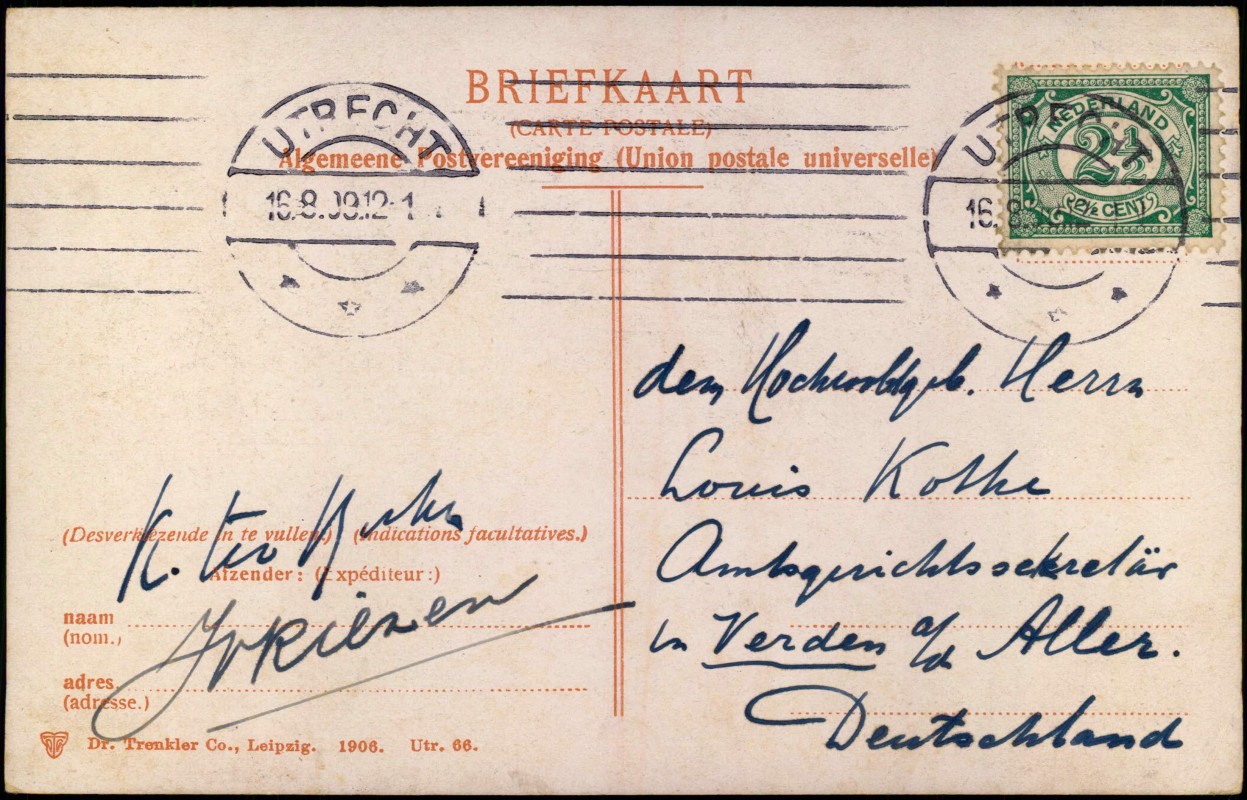 BRIEFKAART
(CARTE POSTALE)
Algemeene Postvereeniging (Union postale universelle)
UTRECHT
16.8.09.12-1
UTRECHT
16.8
NEDERLAND
2½
2½ CENT
dem Hochwohlgeb. Herrn
Louis Kothe
Amtsgerichtssekretär
in Verden a/d Aller.
Deutschland
K. ter
(Desverkiezende in te vullen.) (Indications facultatives.)
Afzender: (Expéditeur:)
naam
(nom.)
adres
(adresse.)
Dr. Trenkler Co., Leipzig. 1906. Utr. 66.